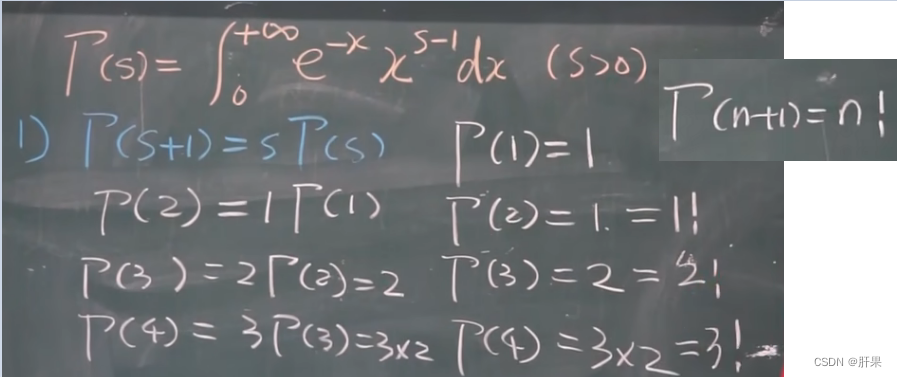 Γ(s) = ∫₀^{+∞} e^{-x} x^{s-1} dx (s>0)
Γ(n+1) = n!
1) Γ(s+1) = sΓ(s) Γ(1) = 1
Γ(2) = 1Γ(1) Γ(2) = 1. = 1!
Γ(3) = 2Γ(2) = 2 Γ(3) = 2 = 2!
Γ(4) = 3Γ(3) = 3×2 Γ(4) = 3×2 = 3!
CSDN @肝果